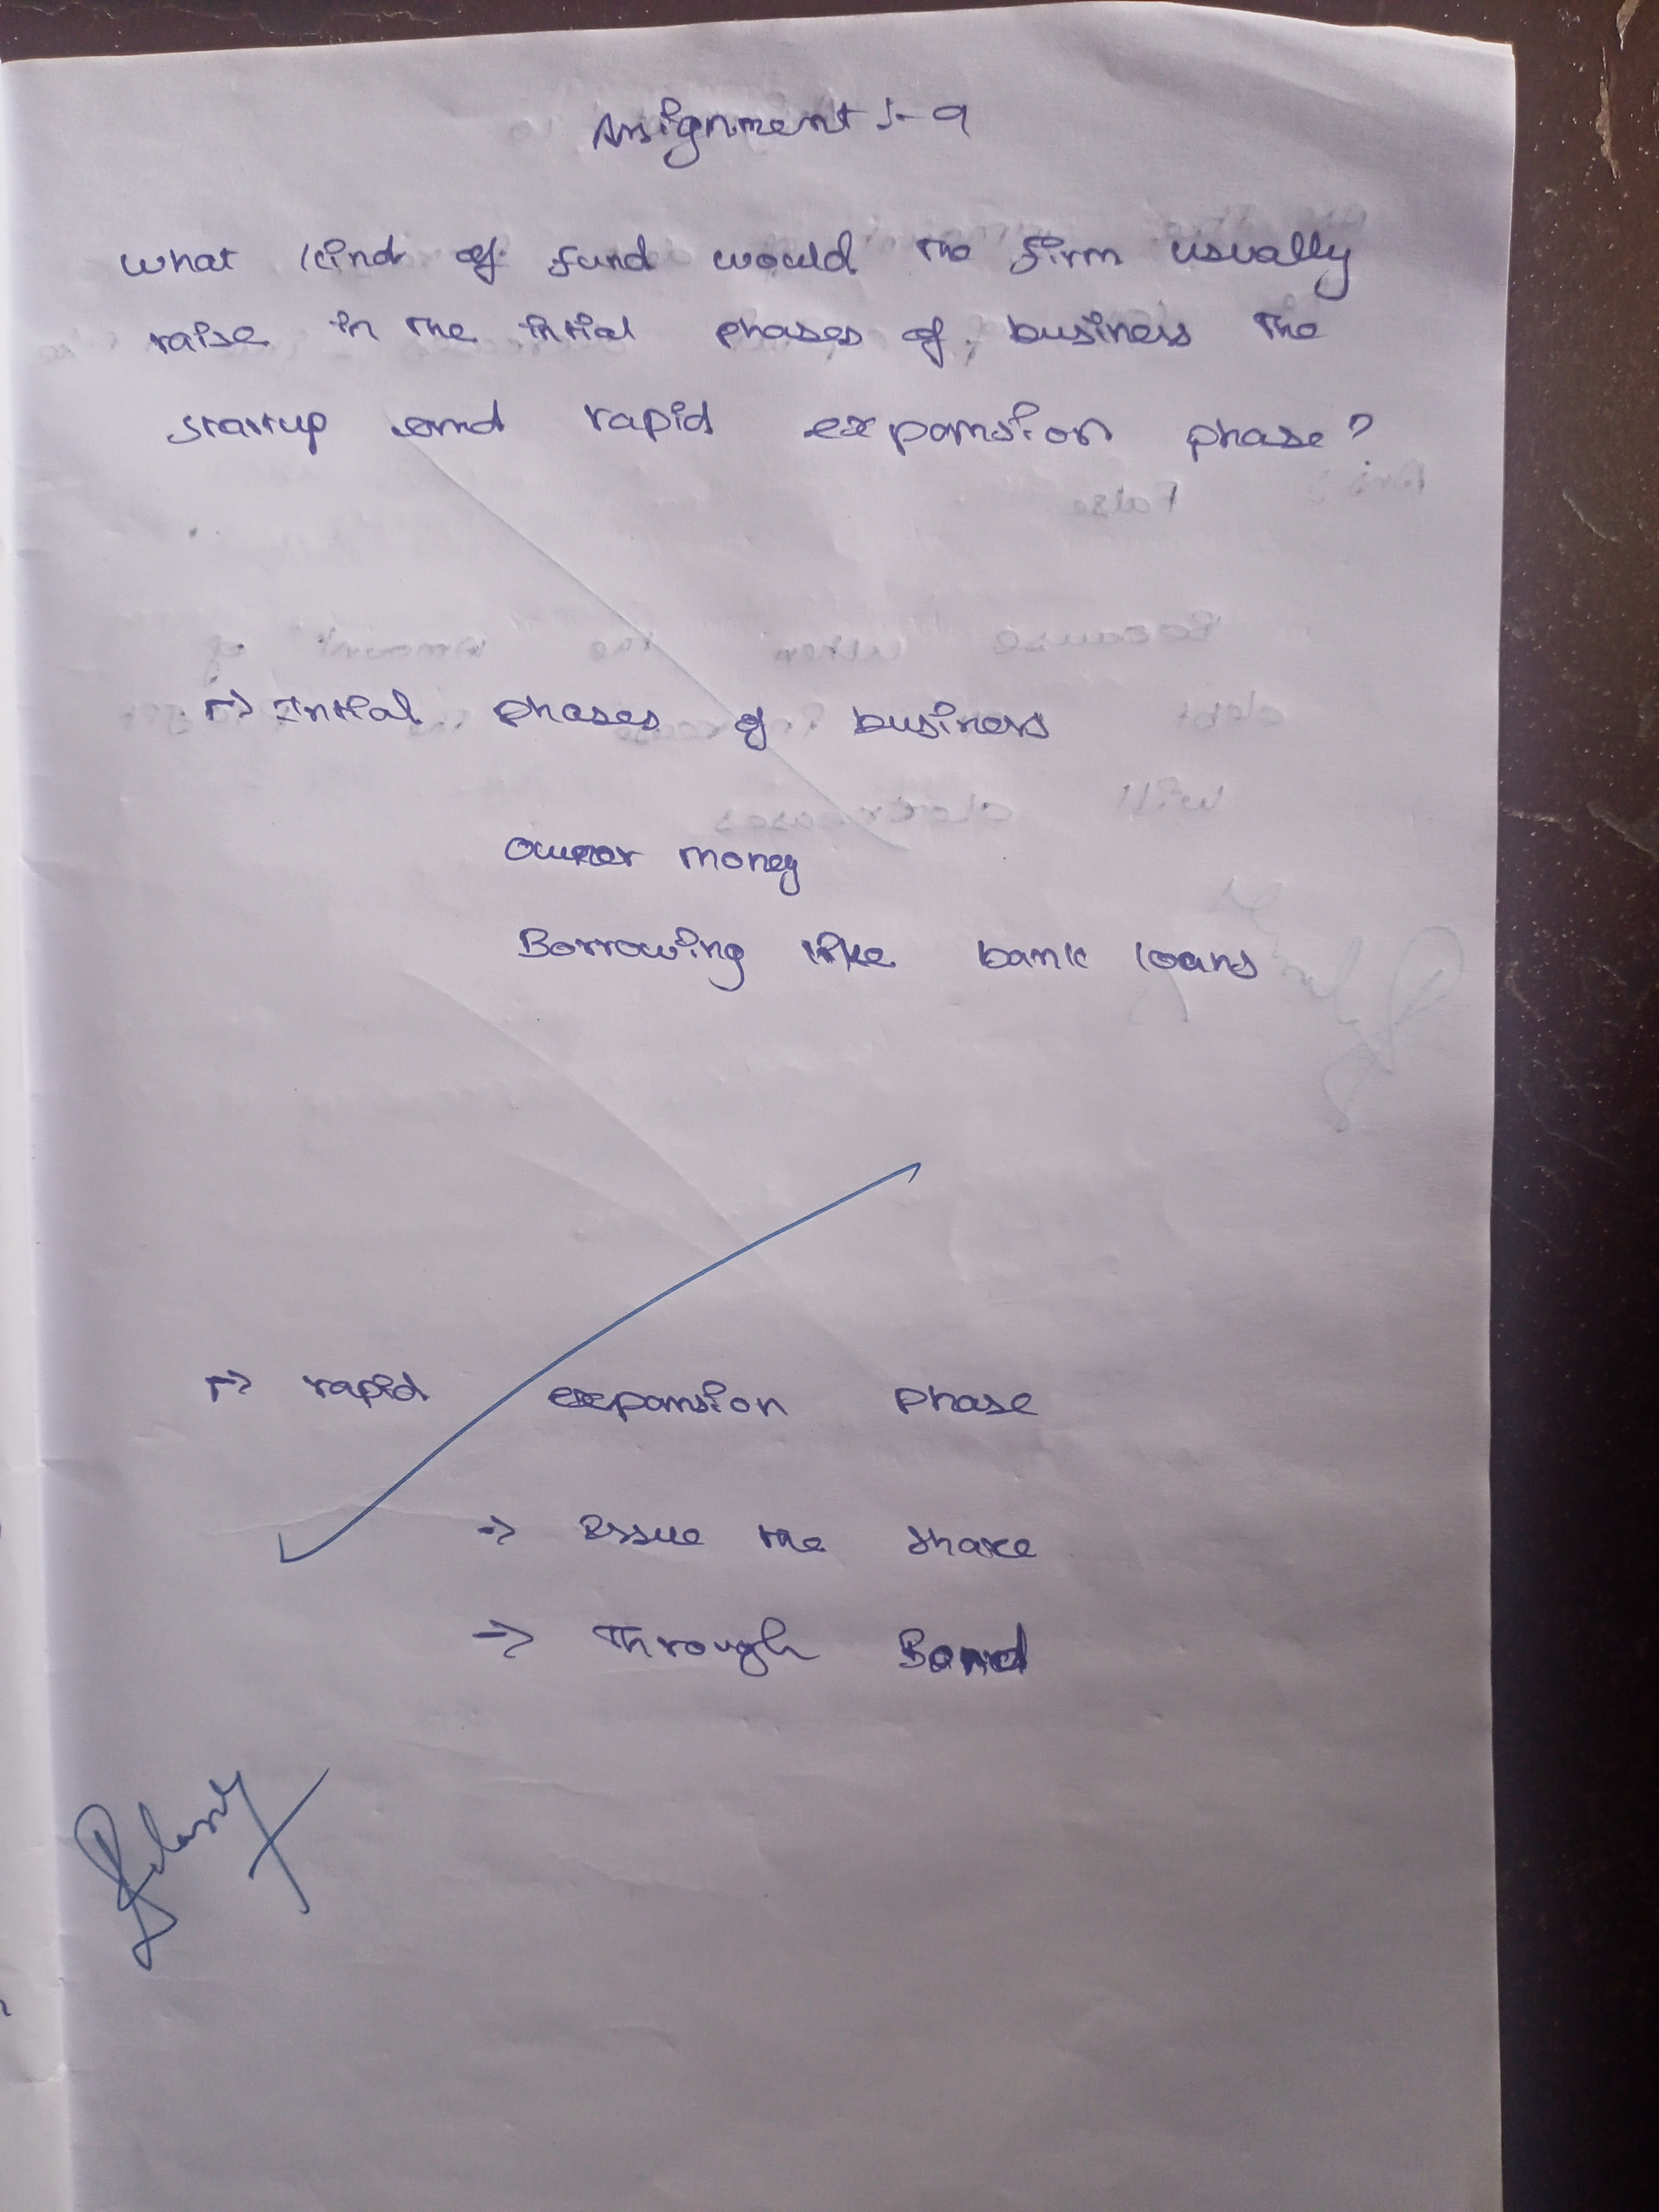 Assignment :- 9
What kind of fund would the firm usually
raise in the intial phases of business the
startup and rapid expansion phase?
→ Intial phases of business
Owner money
Borrowing like bank loans
→ rapid expansion phase
→ Issue the share
→ Through Bond